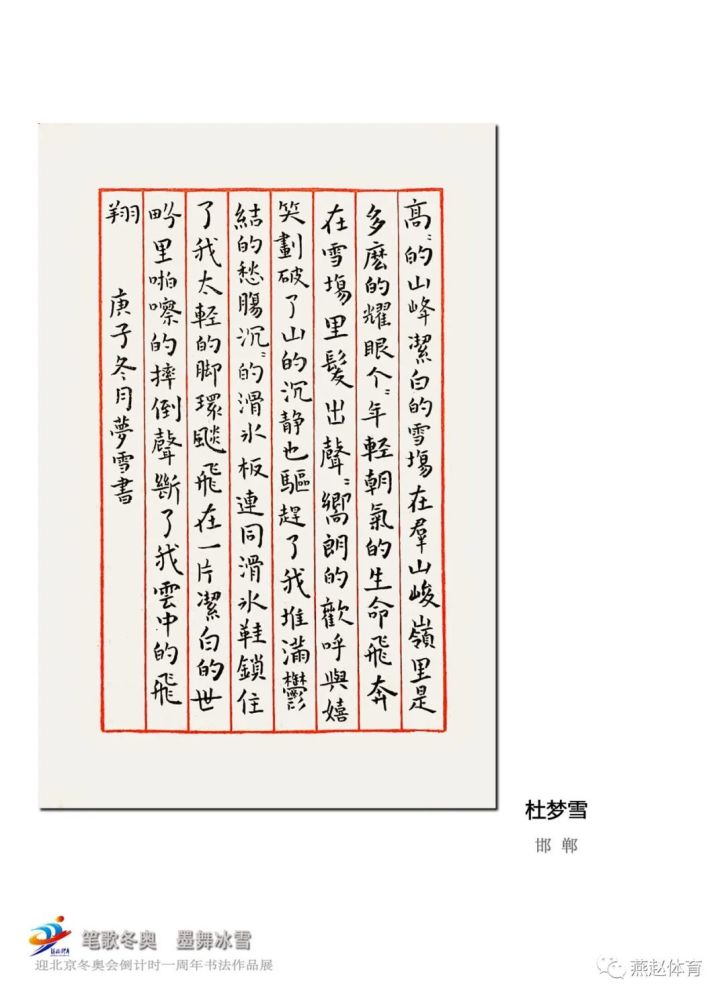 高〻的山峰潔白的雪塲在羣山峻嶺里是
多麽的耀眼个〻年轻朝氣的生命飛奔
在雪塲里髮出聲〻嚮朗的歡呼與嬉
笑劃破了山的沉静也驅趕了我堆滿鬱
結的愁腸沉〻的滑氷板連同滑氷鞋鎖住
了我太輕的脚環飈飛在一片潔白的世
畍里啪嚓的摔倒聲斷了我雲中的飛
翔
庚子冬月夢雪書
杜梦雪
邯郸
笔歌冬奥 墨舞冰雪
迎北京冬奥会倒计时一周年书法作品展
燕赵体育